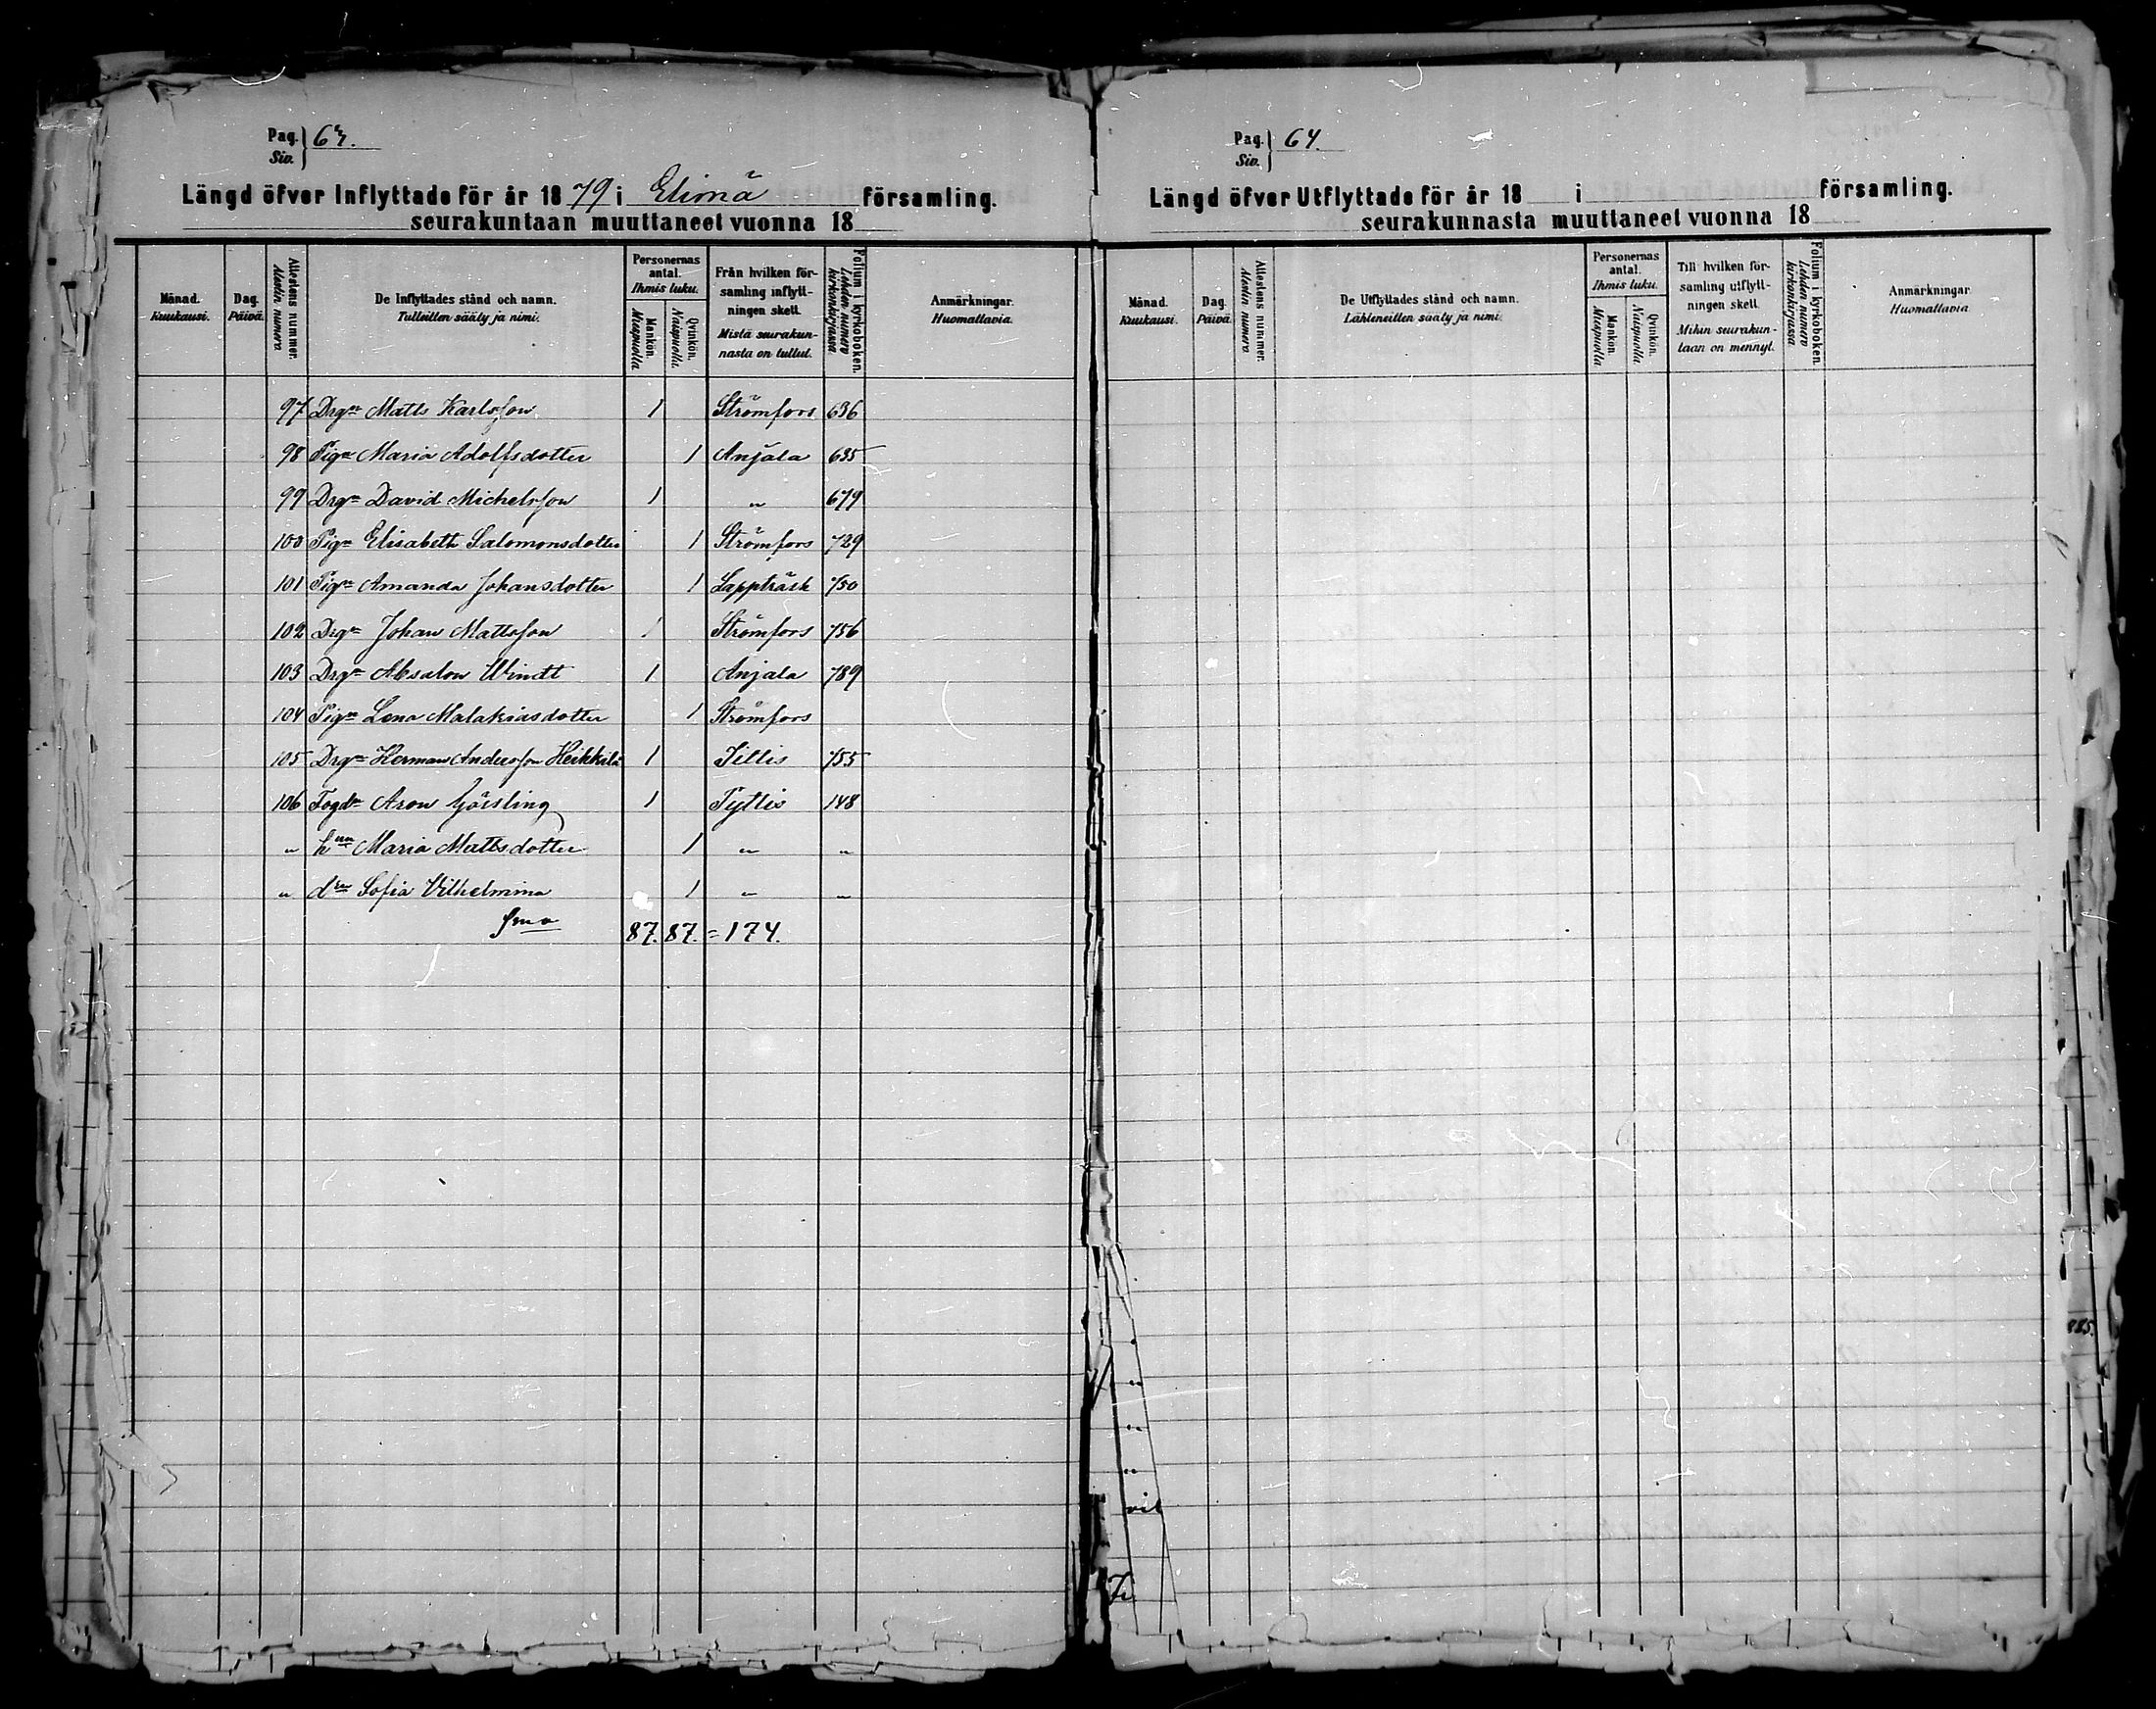 Pag. Siv. } 63.
Längd öfver Inflyttade för år 1879 i Elimä församling.
seurakuntaan muuttaneet vuonna 18
Månad. Kuukausi.
Dag. Päivä.
Attestens nummer. Alestin numero
De Inflyttades stånd och namn. Tulleitten sääty ja nimi.
Personernas antal. Ihmis luku.
Mankön. Miespuolia
Qvinkön. Naispuolia.
Från hvilken församling inflyttningen skett. Mistä seurakunnasta on tullut.
Folium i kyrkoboken. Lehden numero kirkonkirjassa.
Anmärkningar. Huomattavia.
97 Drgn Matts Karlsson 1 Strömfors 636
98 Pign Maria Adolfsdotter 1 Anjala 635
99 Drgn David Michelsson 1 " 679
100 Pign Elisabeth Salomonsdotter 1 Strömfors 729
101 Pign Amanda Johansdotter 1 Lappträsk 750
102 Drgn Johan Mattsson 1 Strömfors 756
103 Drgn Absalon Windt 1 Anjala 789
104 Pign Lena Malakiasdotter 1 Strömfors
105 Drgn Herman Andersson Heikkilä 1 Jittis 755
106 Fogdn Aron Görsling 1 Pyttis 148
" hun Maria Mattsdotter 1 " "
" drn Sofia Vilhelmina 1 " "
Sma 87. 87. = 174.
Pag. Siv. } 64.
Längd öfver Utflyttade för år 18 i församling.
seurakunnasta muuttaneet vuonna 18
Månad. Kuukausi.
Dag. Päivä
Attestens nummer. Alestin numero
De Utflyttades stånd och namn. Lähteneitten sääty ja nimi.
Personernas antal. Ihmis luku.
Mankön. Miespuolia
Qvinkön. Naispuolia
Till hvilken församling utflyttningen skett. Mihin seurakuntaan on mennyt.
Folium i kyrkoboken. Lehden numero kirkonkirjassa
Anmärkningar. Huomattavia
885.
"
"
"